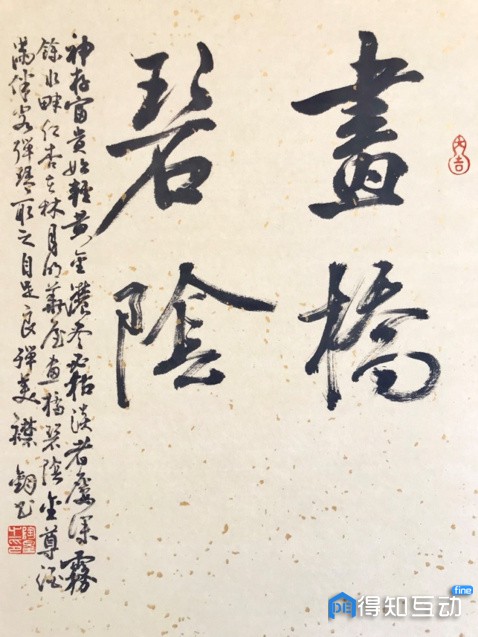 畫橋
碧陰
神存富貴始輕黃金濃盡必枯淡者屢深霧
餘水畔紅杏在林月明華屋畫橋碧陰金尊酒
滿伴客彈琴取之自足良彈美襟
大吉
得知互动
fine